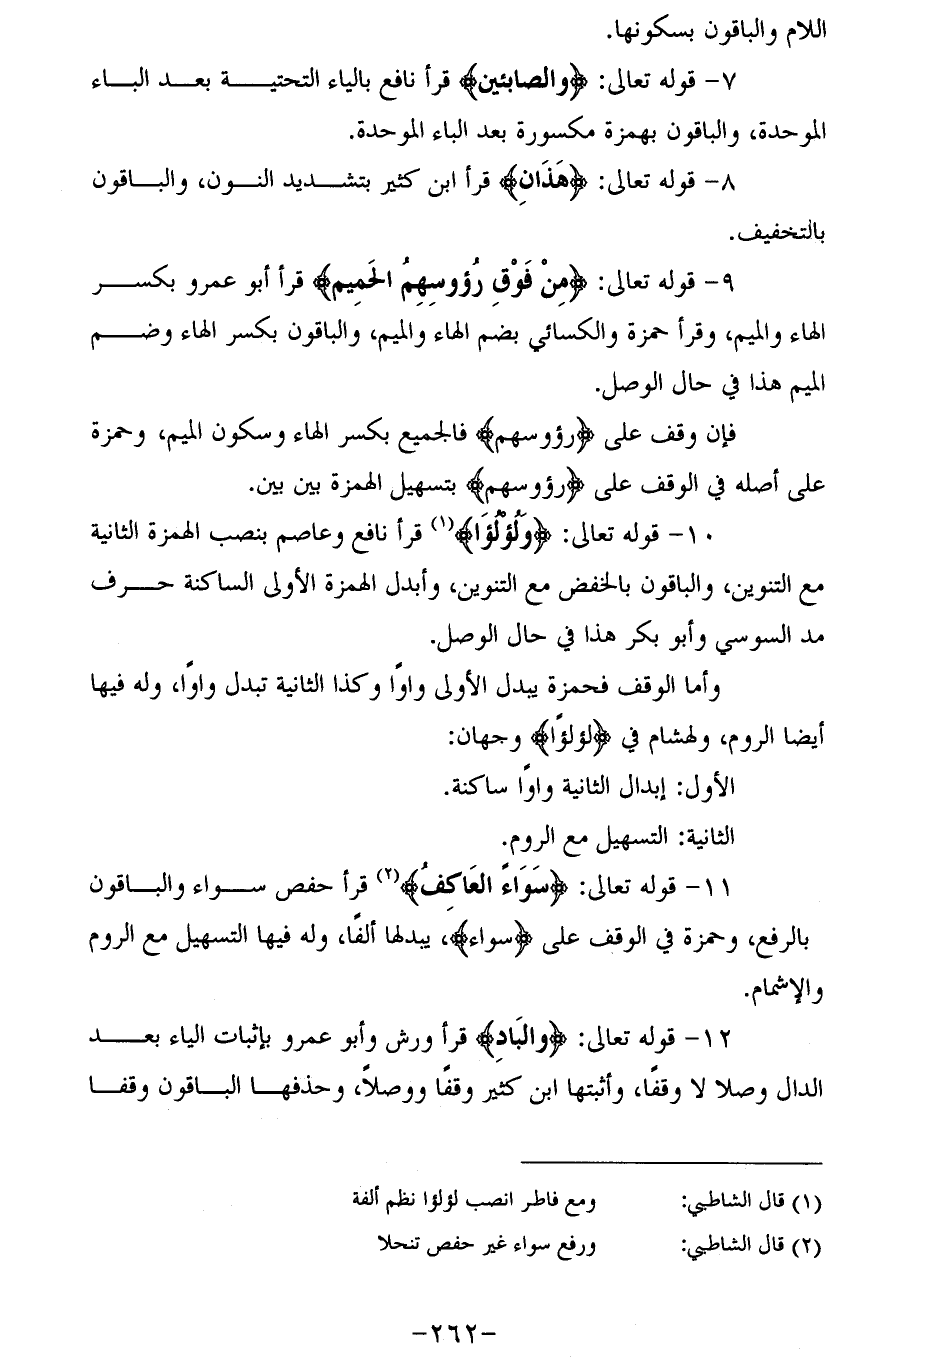 اللام والباقون بسكونها.
٧- قوله تعالى: ﴿والصابئين﴾ قرأ نافع بالياء التحتيـــــة بعـــد البـــاء
الموحدة، والباقون بهمزة مكسورة بعد الباء الموحدة.
٨- قوله تعالى: ﴿هَذَانِ﴾ قرأ ابن كثير بتشـــديد النـــون، والبـــاقون
بالتخفيف.
٩- قوله تعالى: ﴿مِنْ فَوْقِ رُؤُوسِهِمُ الحَمِيم﴾ قرأ أبو عمرو بكســـر
الهاء والميم، وقرأ حمزة والكسائي بضم الهاء والميم، والباقون بكسر الهاء وضـــم
الميم هذا في حال الوصل.
فإن وقف على ﴿رؤوسهم﴾ فالجميع بكسر الهاء وسكون الميم، وحمزة
على أصله في الوقف على ﴿رؤوسهم﴾ بتسهيل الهمزة بين بين.
١٠- قوله تعالى: ﴿وَلُؤْلُؤًا﴾(١) قرأ نافع وعاصم بنصب الهمزة الثانية
مع التنوين، والباقون بالخفض مع التنوين، وأبدل الهمزة الأولى الساكنة حـــرف
مد السوسي وأبو بكر هذا في حال الوصل.
وأما الوقف فحمزة يبدل الأولى واوًا وكذا الثانية تبدل واوًا، وله فيها
أيضا الروم، ولهشام في ﴿لؤلؤًا﴾ وجهان:
الأول: إبدال الثانية واوًا ساكنة.
الثانية: التسهيل مع الروم.
١١- قوله تعالى: ﴿سَوَاءً العَاكِفُ﴾(٢) قرأ حفص ســـواء والبـــاقون
بالرفع، وحمزة في الوقف على ﴿سواء﴾، يبدلها ألفًا، وله فيها التسهيل مع الروم
والإشمام.
١٢- قوله تعالى: ﴿والبَادِ﴾ قرأ ورش وأبو عمرو بإثبات الياء بعـــد
الدال وصلا لا وقفًا، وأثبتها ابن كثير وقفًا ووصلاً، وحذفهـــا البـــاقون وقفـــا
(١) قال الشاطبي: ومع فاطر انصب لؤلؤا نظم ألفة
(٢) قال الشاطبي: ورفع سواء غير حفص تنحلا
-٢٦٢-